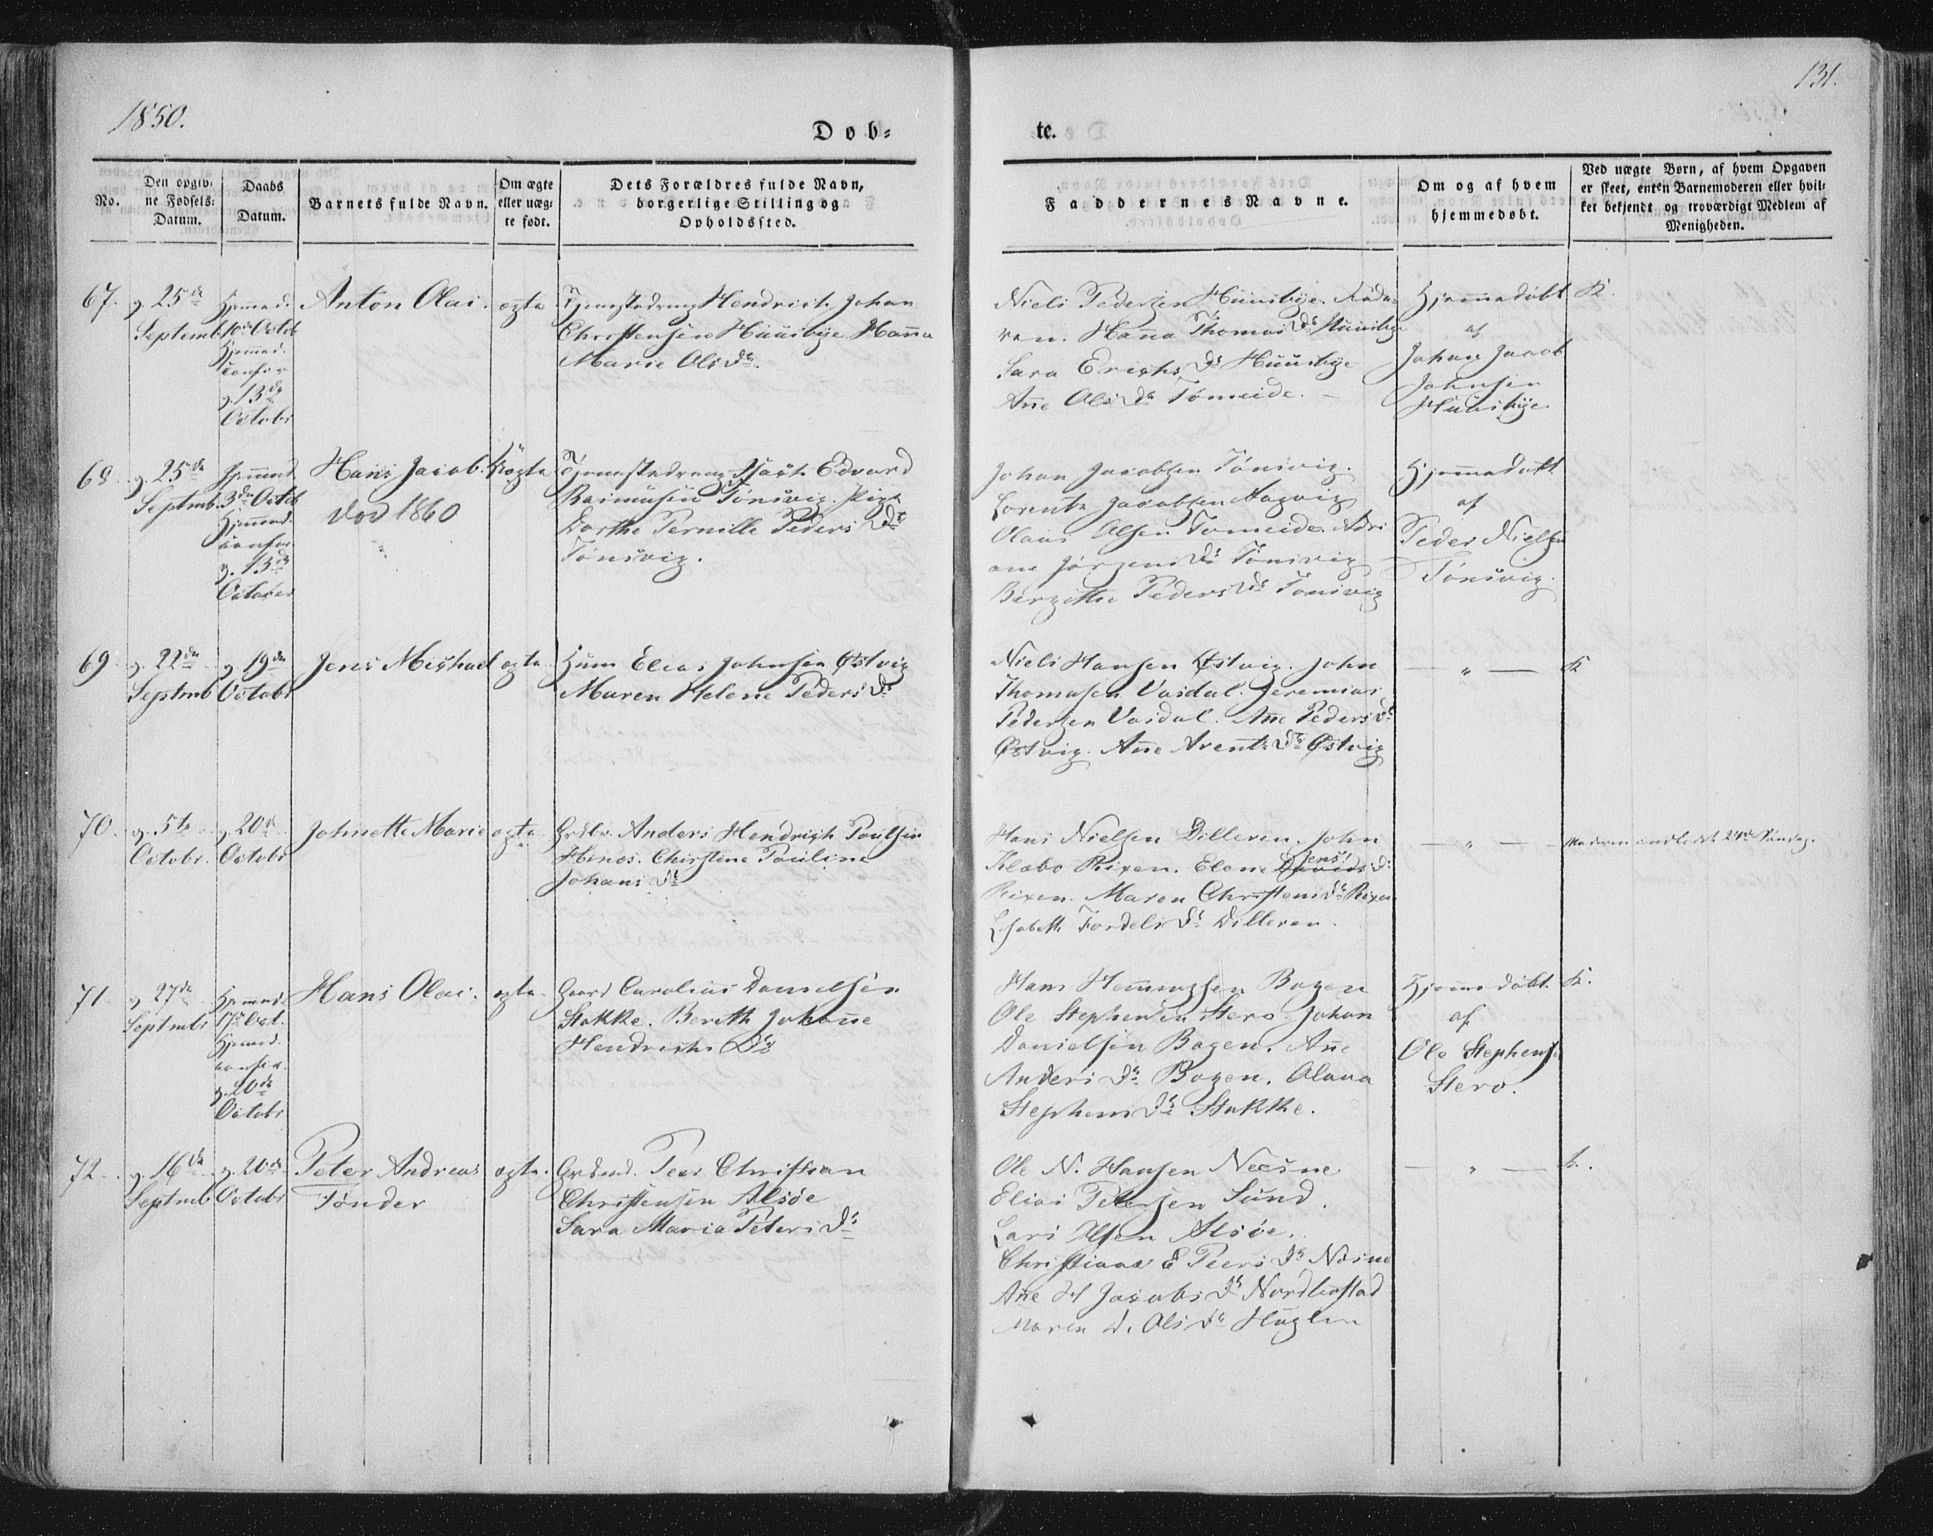 1850.
131.
Døb-
te.
No.
Den opgiv-
ne Fødsels-
Datum.
Daabs
Datum.
Barnets fulde Navn.
Om ægte
eller uæg-
te født.
Dets Forældres fulde Navn,
borgerlige Stilling og
Opholdssted.
Faddernes Navne.
Om og af hvem
hjemmedøbt.
Ved uægte Børn, af hvem Opgaven
er skeet, enten Barnemoderen eller hvil-
ket bekjendt og troværdigt Medlem af
Menigheden.
67.
25de
Septemb
13de
Octobr
Anton Olai.
ægte
Hendrich Johan
Christensen Huusbye Hanna
Marie Olsdr.
Niels Pedersen Huusbye.
Hanna Thomasdr Huusbye
Sara Erichsdr Huusbye
Ane Olsdr Tømeide.
Hjemmedøbt
af
Johan Jacob
Johnsen
Huusbye.
K.
68.
25de
Septmb.
3de Octob
13de
October
Hans Jacob.
død 1860
ægte
Edvard
Rasmusen Tønsvig. Pige
Dorthe Pernille Pedersdr
Tønsvig.
Johan Jacobsen Tønsvig.
Lorentz Jacobsen Aagvig
Olaus Olsen Tømeide. Adri
ane Jørgensdr Tønsvig
Bergette Pedersdr Tønsvig
Hjemmedøbt
af
Peder Nielsen
Tønsvig.
69.
22de
Septmb
19de
Octobr
Jens Michael
ægte.
Huusm Elias Johnsen Østvig
Maren Helene Pedersdr
Niels Hansen Østvig. John
Thomasen Vasdal. Jeremias
Pedersen Vasdal. Ane Pedersdr
Østvig. Ane Arentsdr Østvig
— " —
K
70.
5te
Octobr.
20de
Octobr
Johnette Marie
ægte
Grdbr. Anders Hendrich Poulsen
Hines. Christine Pauline
Johansdr
Hans Nielsen Dilleren. John
Klæbo Rixen. Elene Jensdr
Rixen. Maren Christensdr Rixen
Lisabeth Fordelsdr Dilleren.
— " —
Moderen indledet 24de Søndag.
71.
27de
Septmbr
17de Oct.
20de
Octobr
Hans Olai.
ægte.
Gaard Carolius Danielsen
Stokke. Bereth Johanne
Hendrichsdr
Hans Hemmingsen Bogen
Ole Stephensen Stero. Johan
Danielsen Bogen. Ane
Andersdr Bogen. Olava
Stephensdr Stokke.
Hjemmedøbt
af
Ole Stephensen
Stero.
K.
72.
16de
Septmb
20de
Octobr
Peter Andreas
Tønder
ægte.
Peer Christian
Christensen Alsøe
Sara Maria Petersdr
Ole N. Hansen Næsne
Elias Petersen Sund.
Lars Olsen Alsøe.
Christiana E Peersdr Næsne
Ane H Jacobsdr
Maren D. Olsdr Huglen
— " —
K.